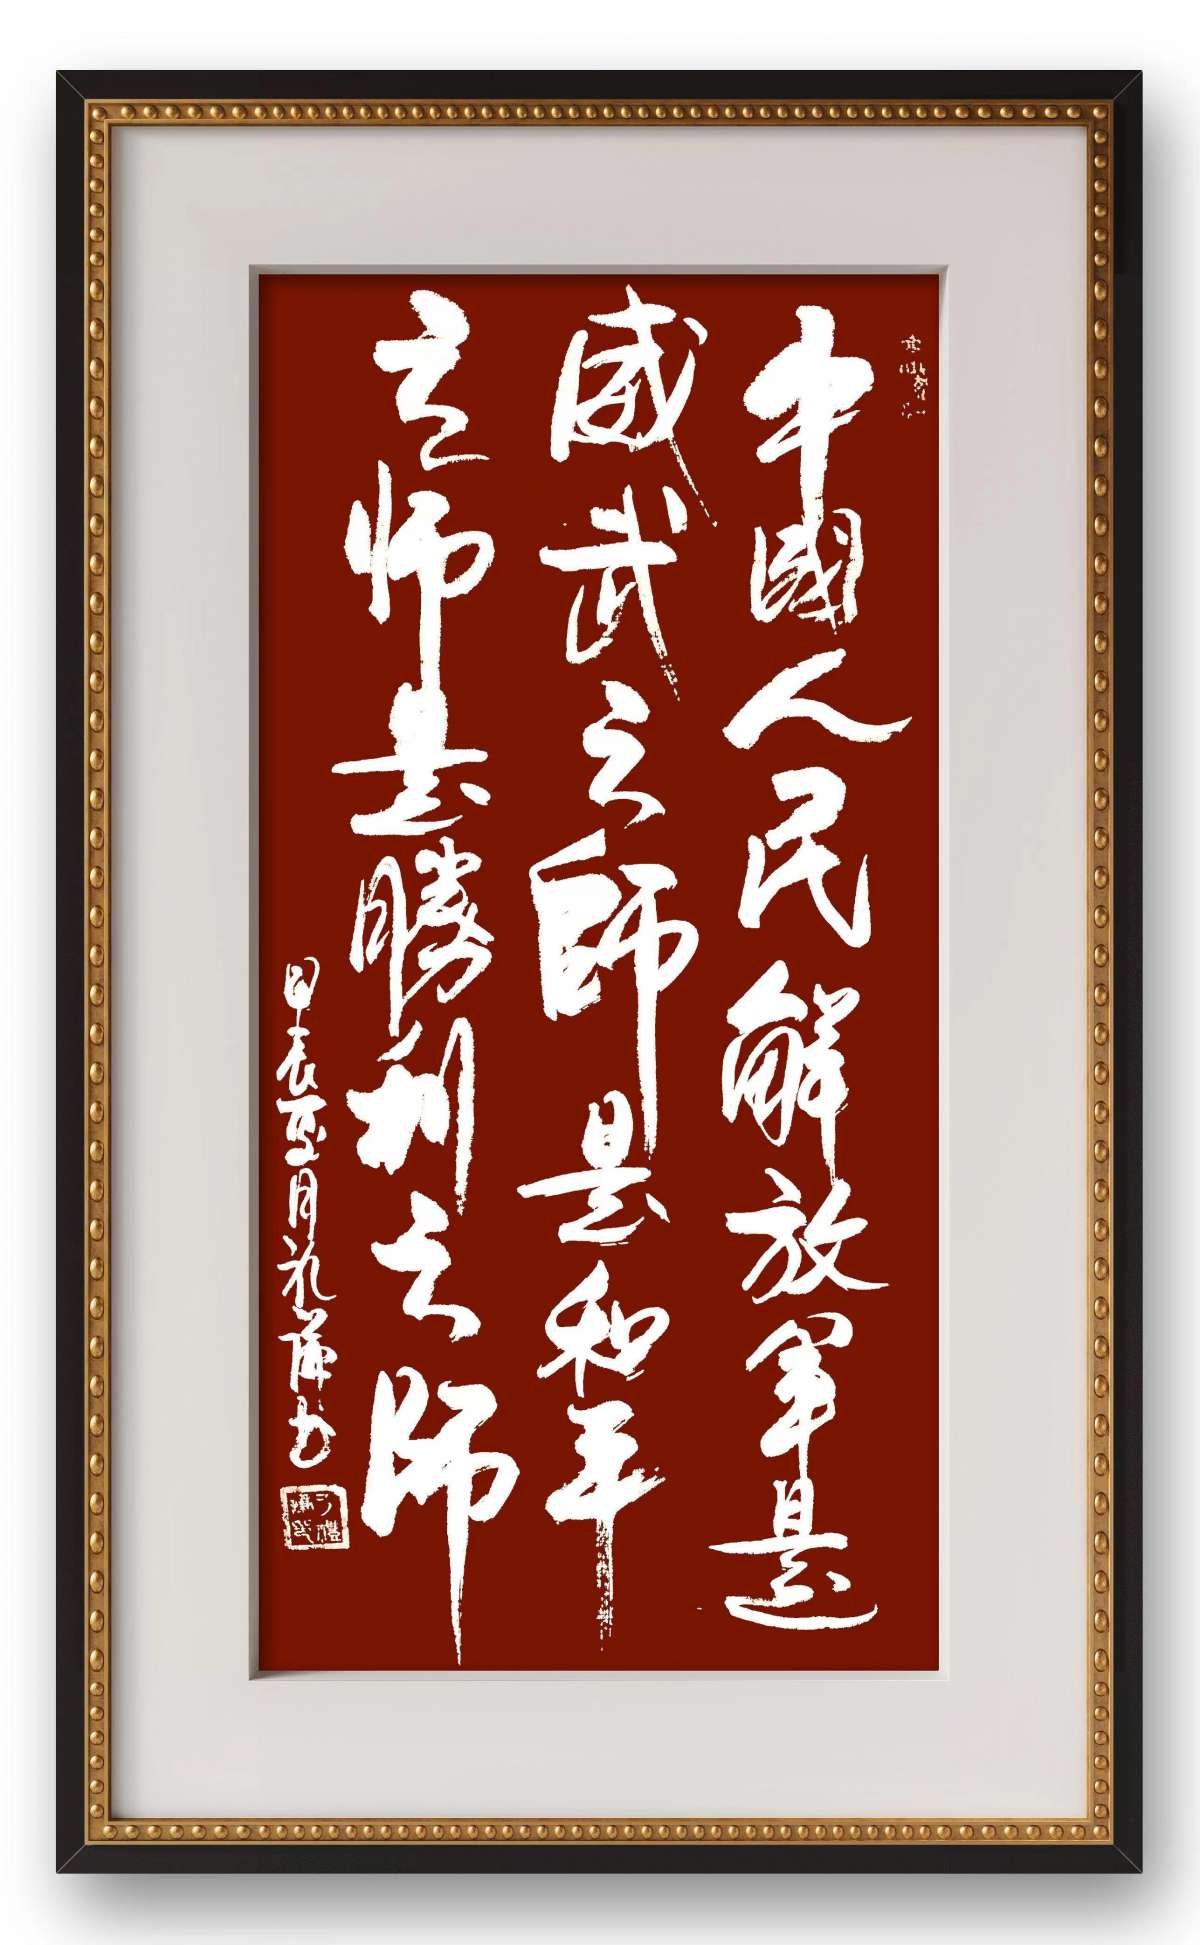 中國人民解放軍是
威武之師是和平
之師是勝利之師
甲辰夏月礼蒲书